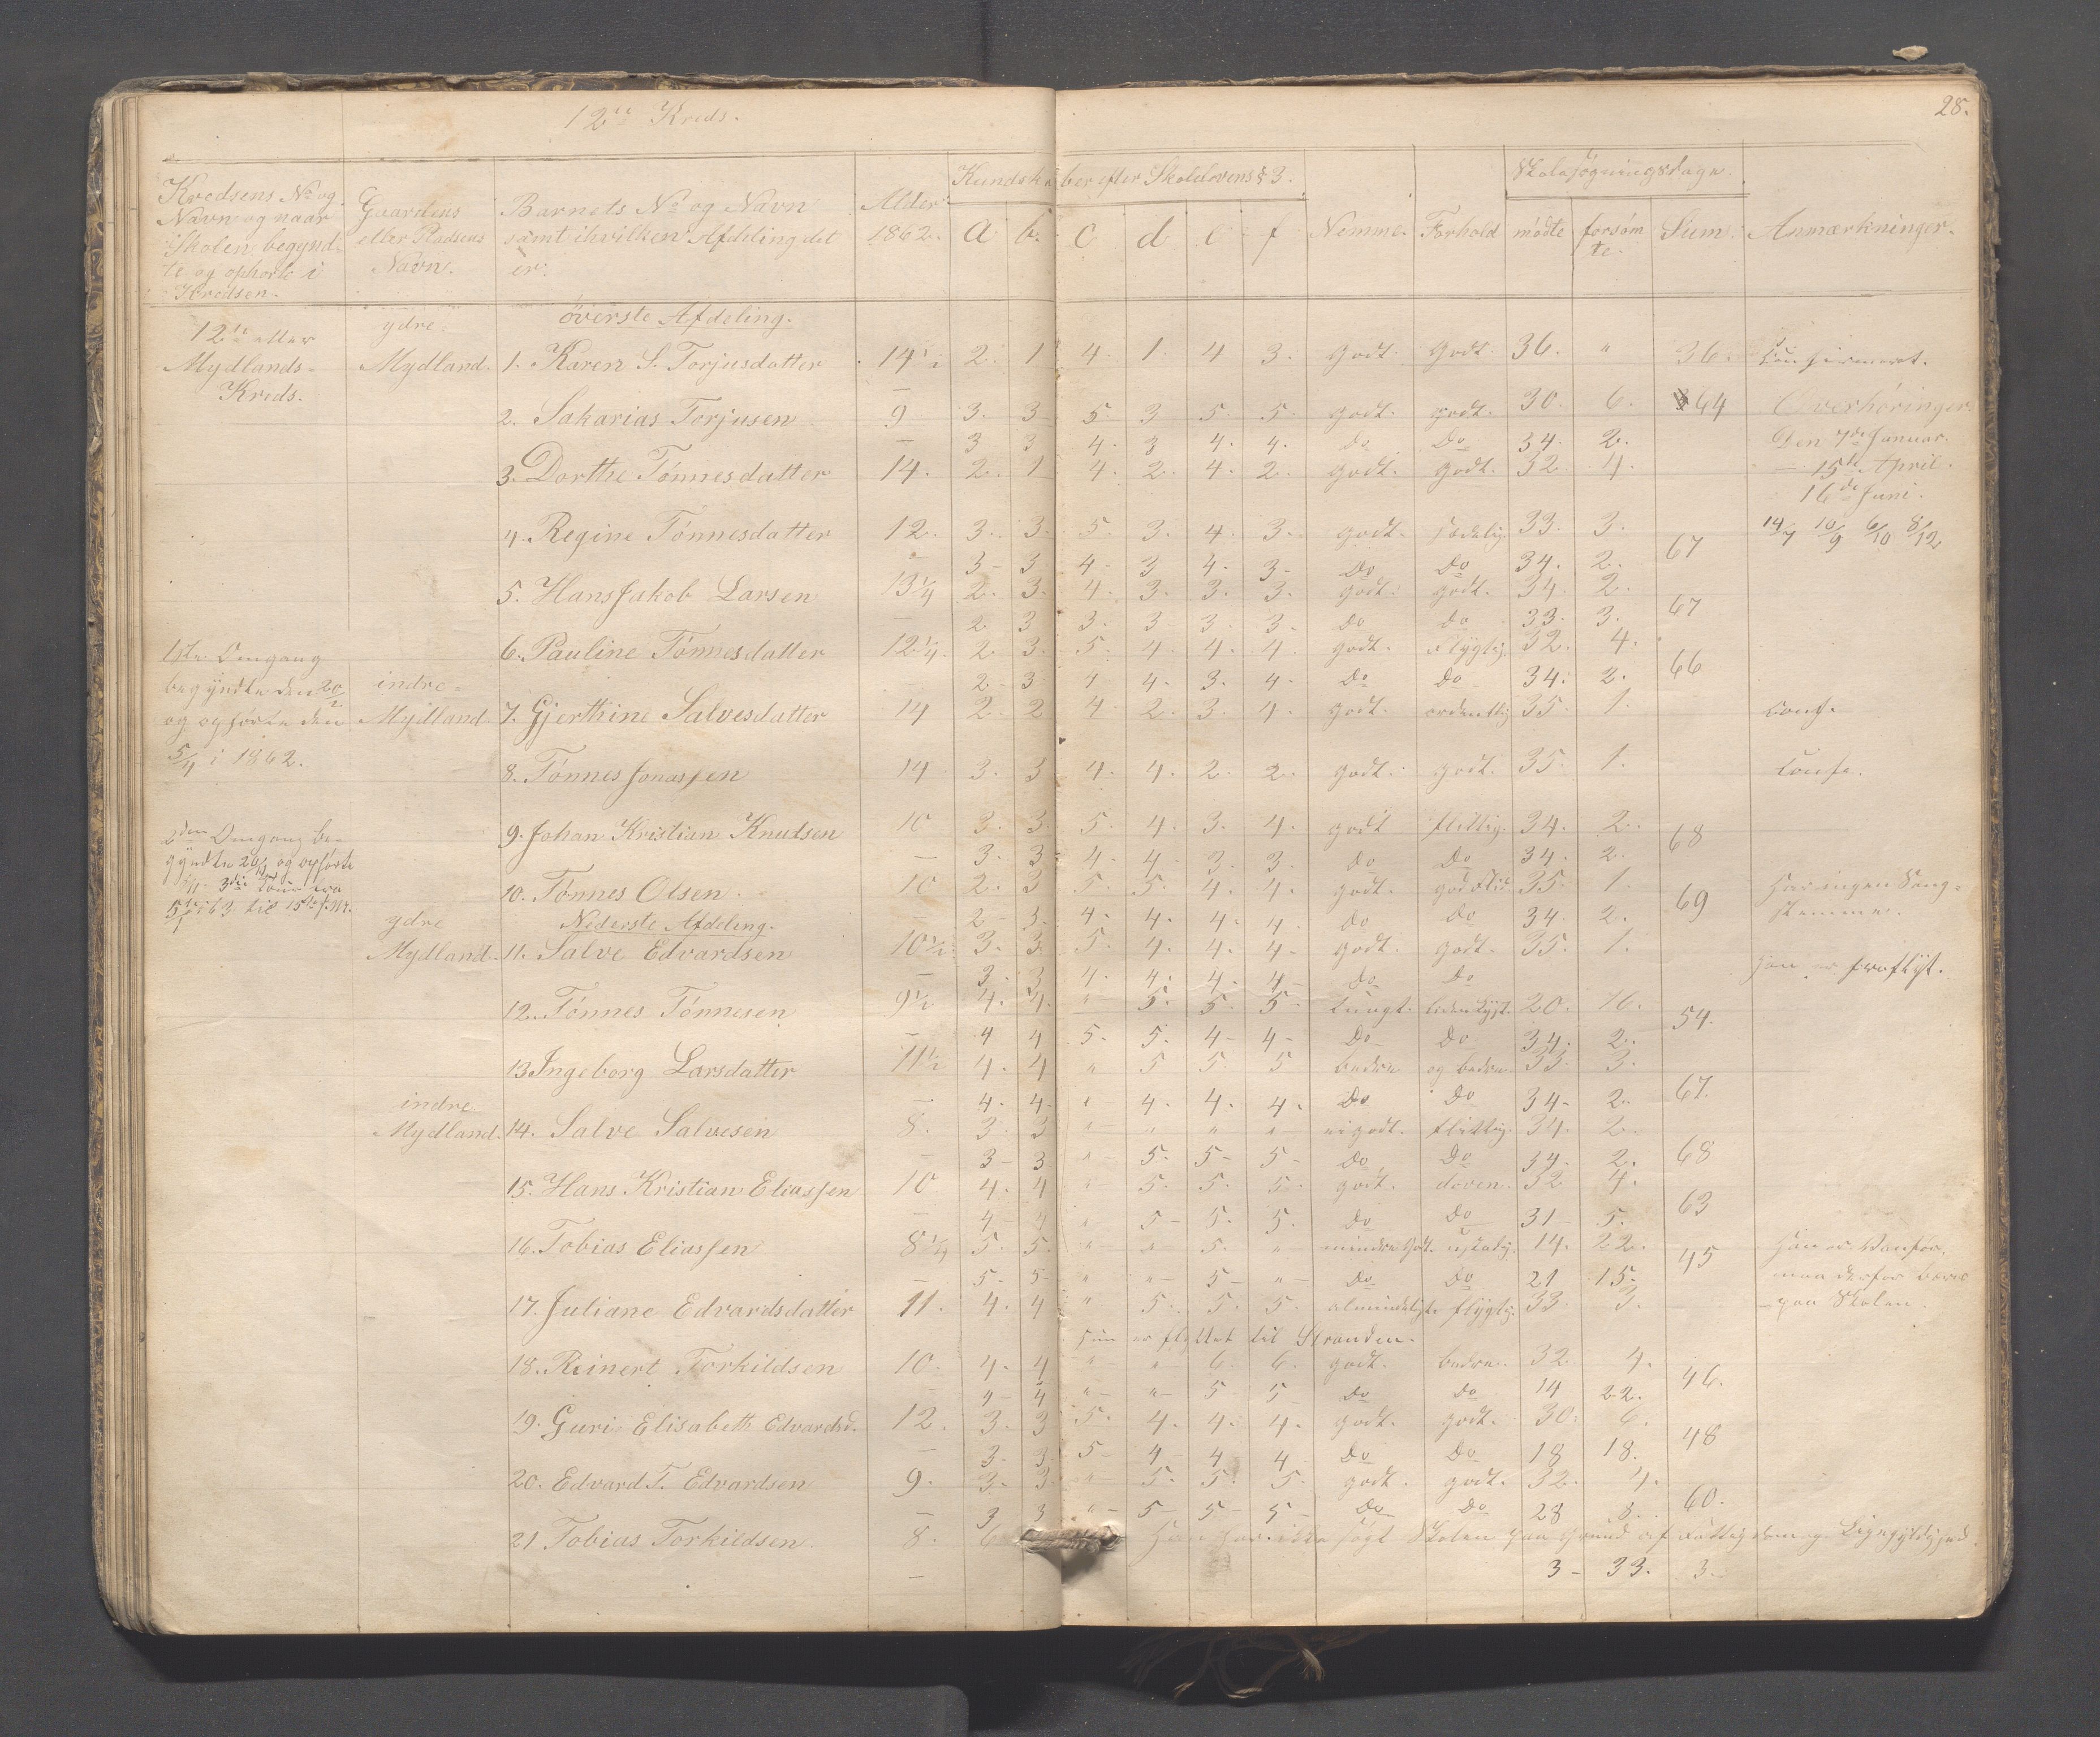 12te Kreds.
28.
Kredsens No og Navn og naar Skolen begyndte og ophørte i Kredsen.
Gaardens eller Pladsens Navn.
Barnets No og Navn samt i hvilken Afdeling det er.
Alder 1862.
Kundskaber efter Skolelovens § 3.
a b. c d e f
Nemme. Forhold
Skolesøgningsdage.
mødte forsømte. Sum.
Anmærkninger.
øverste Afdeling.
12te eller Mydlands-Kreds.
ydre Mydland. 1. Karen S. Torjusdatter 14½ 2. 1 4. 1. 4 3. godt. godt. 36. " 36. Confirmeret.
2. Sakarias Torjusen 9 3. 3 5 3 5. 5. godt. godt. 30. 6. 64 Overhøringer.
– 3 3 4. 3 4. 4. Do Do 34. 2. Den 7de Januar.
3. Dorthe Tønnesdatter 14. 2. 1 4. 2. 4. 2. godt. godt. 32 4. 15de April.
16de Juni.
4. Regine Tønnesdatter 12. 3. 3. 5. 3. 4. 3. godt. sædelig. 33. 3. 67 14/7 10/9 6/10 8/12
– 3 – 3 4 – 3 4 – 3 – Do Do 34. 2.
5. Hans Jakob Larsen 13¼ 2. 3. 4. 3. 3. 3. godt. godt. 34. 2. 67
– 2 3 3. 3 – 3. 3. Do Do 33. 3.
6. Pauline Tønnesdatter 12¼. 2. 3. 5. 4. 4. 4. godt. flygtig. 32. 4. 66
2. – 3. 4 4. 3. 4. Do Do 34. 2.
1ste Omgang begyndte den 20/2 og ophørte den 5/4 i 1862.
indre Mydland. 7. Gjerthine Salvesdatter 14 2. 2 4. 2. 3. 4. godt. ordentlig 35. 1. Conf.
8. Tønnes Jonassen 14 3. 3 4. 4. 2. 2. godt. godt. 35. 1. Conf.
2den Omgang begyndte
9. Johan Kristian Knudsen 10 3. 3. 5. 4. 3. 4. godt flittig. 34. 2. 68
– 3. 3 4. 4. 3. 3. Do Do 34. 2.
10. Tønnes Olsen. 10 2. 3 5. 5. 4. 4. godt. god Flid 35. 1. 69 Har ingen Sangstemme.
– 2 – 3. 4. 4. 4. 4. Do Do 34. 2.
Nederste Afdeling.
ydre Mydland. 11. Salve Edvardsen 10½ 3. 3. 5. 4. 4. 4 – godt. godt. 35. 1.
– 3. 3 4. 4. 4. 4 – Do Do Han er fraflyt.
12. Tønnes Tønnesen 9½ 4. 4. " 5. 5. 5. tungt. liden Lyst. 20. 16. 54.
– 4 4 5. 5. 4 – 4 – Do Do 34. 2.
13 Ingeborg Larsdatter 11½ 4. 4 " 5 5 5 bedre og bedre 33. 3. 67.
– 4. 4. " 4. 4. 4. Do Do 34 – 2.
indre Mydland. 14. Salve Salvesen 8. 3. 3 " " " " godt. flittig. 34. 2. 68
– 3 – 3 " 5. 5 – 5 – Do Do 34 – 2.
15. Hans Kristian Eliassen 10. 4. 4 " 5. 5. 5. godt. doven. 32 4. 63
– 4 – 4 " 5 – 5. 5. Do Do 31 – 5.
16. Tobias Eliassen 8¼ 5. 5. " " 5. " mindre godt. ustadig. 14. 22. 45 Han er Vanfør, maa derfor bæres paa Skolen.
– 5. 5 – " " – 5 – " – Do Do 21 15.
17. Juliane Edvardsdatter 11. 4. 4 " 5. 5. 5. almindeligt. flygtig. 33. 3.
Hun er flyttet til Stranden.
18. Reinert Torkildsen 10. 4. 4 " " 6. 6. godt. bedre. 32. 4. 46.
– 4 – 4 " – " – 5 5 Do Do 14 22.
19. Guri Elisabeth Edvardsd. 12. 3. 3 5. 4. 4. 4. godt. godt. 30. 6. 48
– 3. 3. 5 4 – 4 4 Do Do 18 18.
20. Edvard T. Edvardsen 9. 3. 3. " 5. 5. 5. godt. godt. 32. 4. 60.
– 3 3 " – 5 – 5 – 5 – Do Do 28 8.
21 Tobias Torkildsen. 8. 6 Han har ikke søgt Skolen paa Grund af Fattigdom og Ligegyldighed.
– 3 – 33. 3.